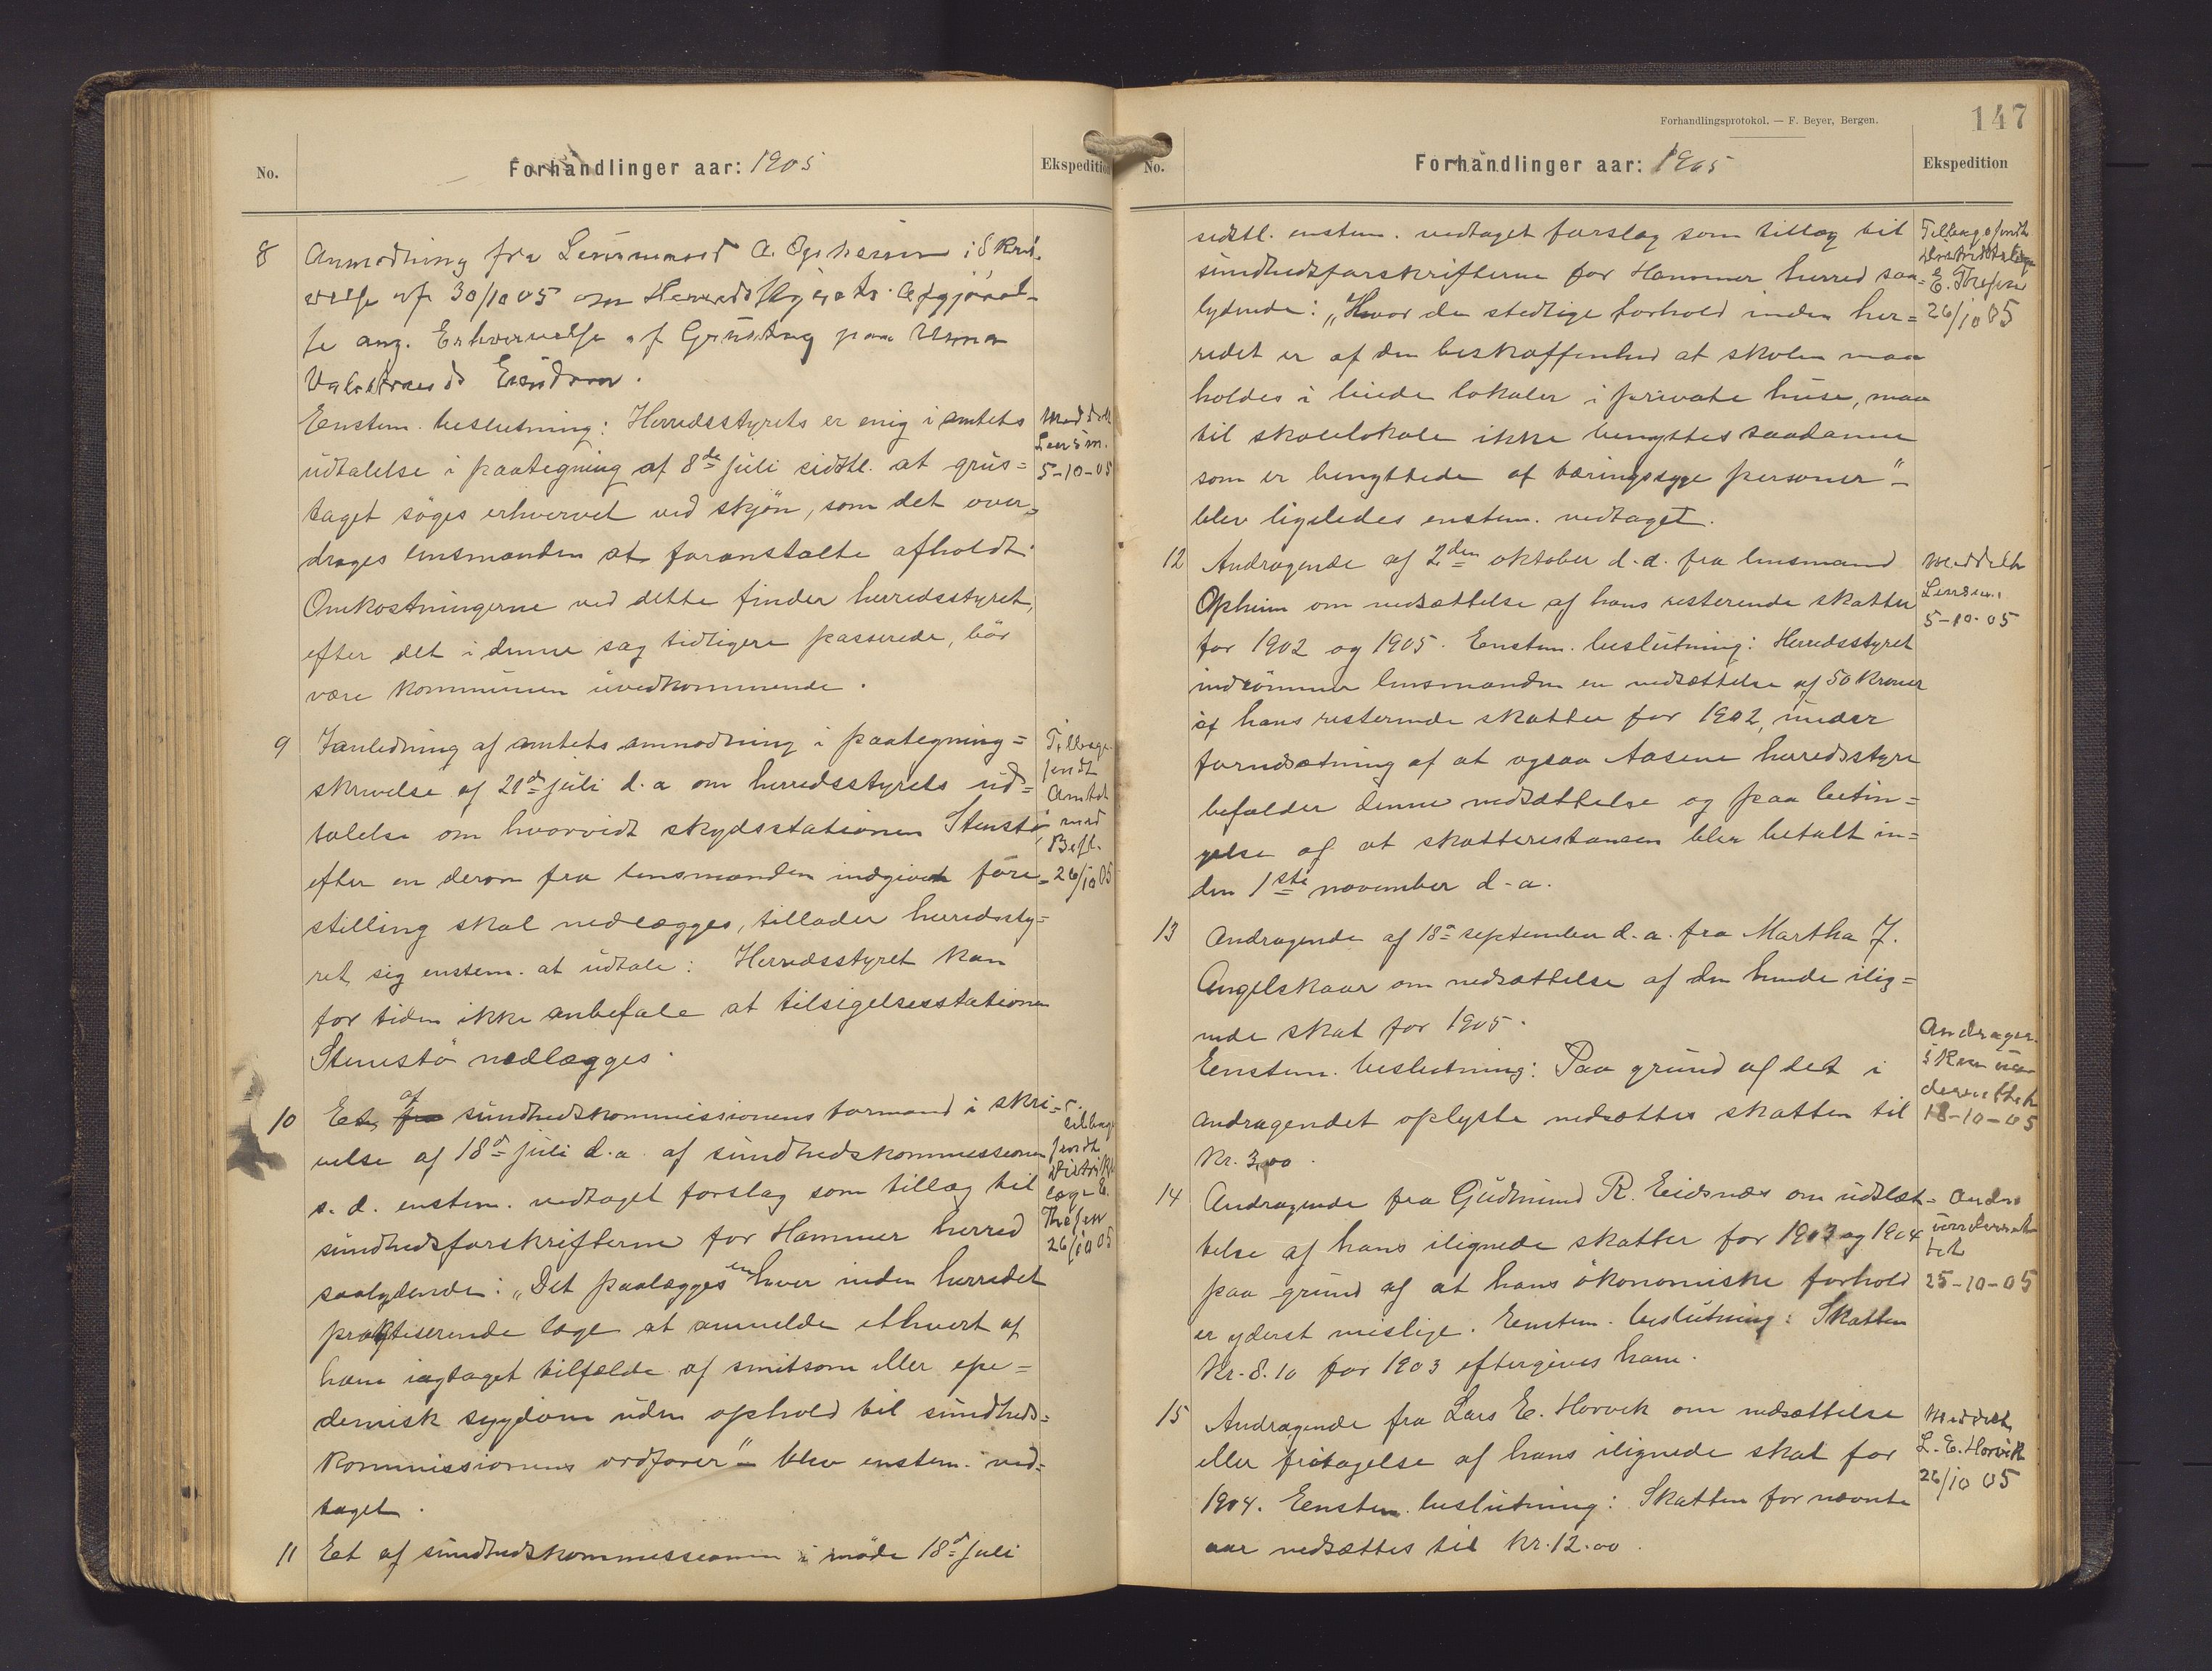 No.
Forhandlinger aar: 1905
Ekspedition
8
Anmodning fra Lensmand A. Opheim i Skri-
velse af 30/10 05 om Herredsstyrets Afgjörel-
se ang. Erhvervelse af Grustag paa
Eiendom.
Eenstem. beslutning: Herredsstyrets er enig i amtets
udtalelse i paategning af 8de juli sidstl. at grus=
taget söges erhvervet ved skjön, som det over-
drages lensmanden at foranstalte afholdt.
Omkostningerne ved dette finder herredsstyret,
efter det i denne sag tidligere passerede, bör
være kommunen uvedkommende.
Meddelt
Lensm.
5-10-05
9
I anledning af amtets anmodning i paategning=
skrivelse af 21de juli d.a om herredsstyrets ud=
talelse om hvorvidt skydsstationen Stenstö
efter en derom fra lensmanden indgivet fore=
stilling skal nedlægges, tillader herredssty=
ret sig enstem. at udtale: Herredsstyret kan
for tiden ikke anbefale at tilsigelsesstationen
Stenstö nedlægges.
Tilbage-
sendt
Amtet
med
Besl.
26/10 05
10
Et af fra sundhedskommissionens formand i skri=
velse af 18d juli d.a. af sundhedskommissionen
s.d. enstem. vedtaget forslag som tillæg til
sundhedsforskrifterne for Hammer herred
saalydende: „Det paalægges enhver inden herredet
praktiserende læge at anmelde ethvert af
ham iagtaget tilfælde af smitsom eller epe=
demisk sygdom uden ophold til sundheds=
kommissionens ordfører" – blev enstem. ved=
taget.
Tilbage
sendt
distrikts
læge E.
Thesen
26/10 05
11
Et af sundhedskommissionen i møde 18d juli
Forhandlingsprotokol. — F. Beyer, Bergen.
147
No.
Forhandlinger aar: 1905
Ekspedition
sidstl. enstem. vedtaget forslag som tillæg til
sundhedsforskrifterne for Hammer herred saa=
lydende: „Hvor de stedlige forhold inden her=
redet er af den beskaffenhed at skolen maa
holdes i leiede lokaler i private huse, maa
til skolelokale ikke benyttes saadanne
som er benyttede af tæringssyge personer" –
blev ligeledes enstem. vedtaget.
Tilbagesendt
distriktslæge
E. Thesen
26/10 05
12
Andragende af 2den oktober d.a. fra lensmand
Opheim om nedsættelse af hans resterende skatter
for 1902 og 1905. Eenstem. beslutning: Herredsstyret
indrömmer lensmanden en nedsættelse af 50 kroner
af hans resterende skatter for 1902, under
forudsætning af at ogsaa Aasene herredsstyre
befalder denne nedsættelse og paa betin=
gelse af at skatterestancen blir betalt in=
den 1ste november d.a.
Meddelt
Lensm.
5-10-05
13
Andragende af 18d september d.a. fra Martha J.
Angelskaar om nedsættelse af den hende ilig=
nede skat for 1905.
Eenstem. beslutning: Paa grund af det i
andragendet oplyste nedsættes skatten til
Kr. 3,00.
Andrager-
sken un-
derrettet
18-10-05
14
Andragende fra Gudmund R. Eidsnæs om udslæt=
telse af hans ilignede skatter for 1903 og 1904
paa grund af at hans ökonomiske forhold
er yderst mislige. Eenstem. beslutning: Skatten
Kr. 8.10 for 1903 eftergives ham.
Andr.
underret-
tet
25-10-05
15
Andragende fra Lars E. Horvik om nedsættelse
eller fritagelse af hans ilignede skat for
1904. Eenstem. beslutning: Skatten for nævnte
aar nedsættes til Kr. 12.00.
Meddelt
L. E. Horvik
26/10 05